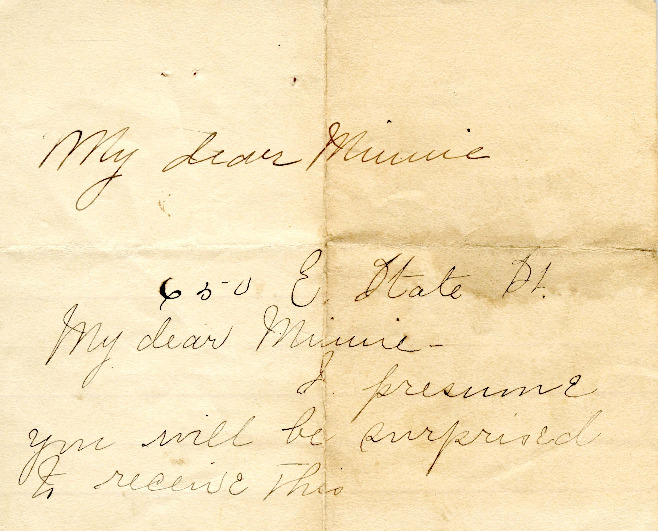 My dear Minnie
650 E. State St.
My dear Minnie-
I presume
you will be surprised
to receive this